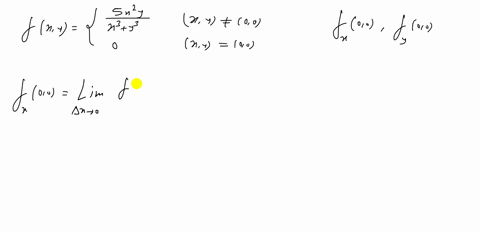 f(x,y) = { 5x²y / x³+y³ (x,y) ≠ (0,0) f_x(0,0) , f_y(0,0)
0 (x,y) = (0,0)
f_x(0,0) = Lim Δx→0 f